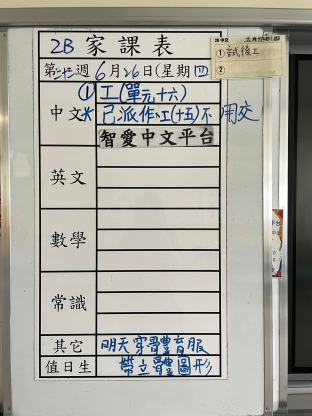 2B 家課表
第廿二週 6月26日(星期四)
中文 ① 工(單元十六)
* 已派作工(十五)不用交
智愛中文平台
英文
數學
常識
其它 明天穿體育服
值日生 帶立體圖形
① 試後工
②